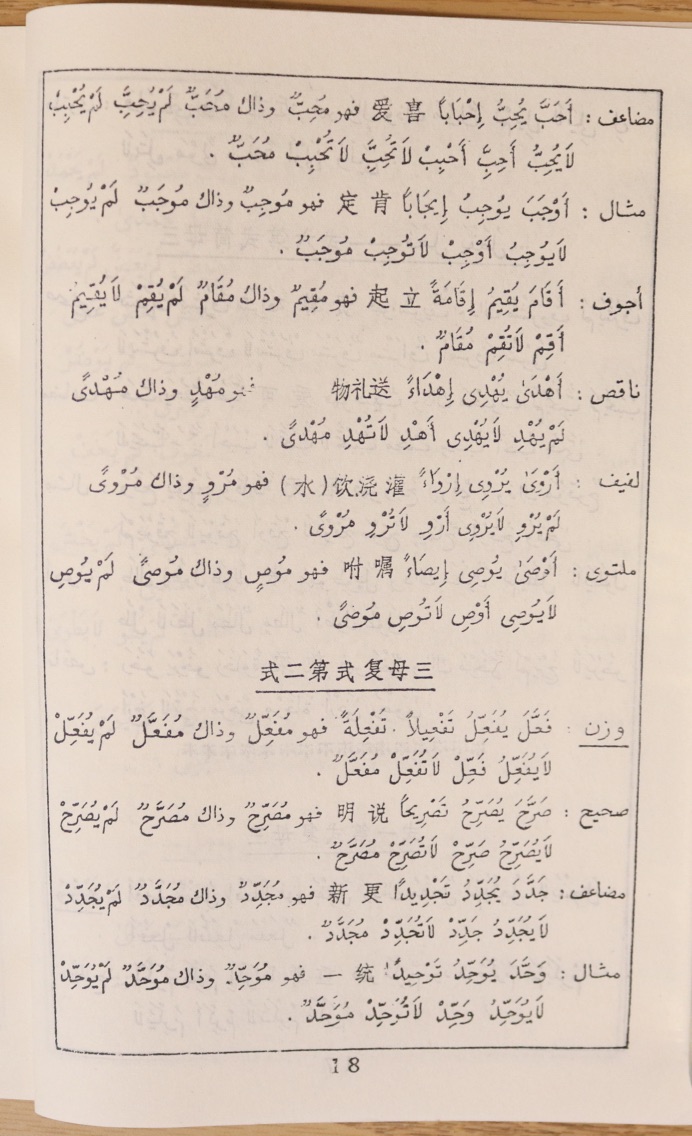 مضاعف : أَحَبَّ يُحِبُّ إِحْبَاباً 喜爱 فهو مُحِبٌّ وذاك مُحَبٌّ لَمْ يُحِبَّ لَمْ يُحْبِبْ
لَايُحِبُّ أَحِبَّ أَحْبِبْ لَاتُحِبَّ لَاتُحْبِبْ مُحَبٌّ .
مثال : أَوْجَبَ يُوجِبُ إِيجَاباً 肯定 فهو مُوجِبٌ وذاك مُوجَبٌ لَمْ يُوجِبْ
لَايُوجِبُ أَوْجِبْ لَاتُوجِبْ مُوجَبٌ .
أجوف : أَقَامَ يُقِيمُ إِقَامَةً 立起 فهو مُقِيمٌ وذاك مُقَامٌ لَمْ يُقِمْ لَايُقِيمُ
أَقِمْ لَاتُقِمْ مُقَامٌ .
ناقص : أَهْدَىٰ يُهْدِى إِهْدَاءً 送礼物 فهو مُهْدٍ وذاك مُهْدىً
لَمْ يُهْدِ لَايُهْدِى أَهْدِ لَاتُهْدِ مُهْدىً .
لفيف : أَرْوَىٰ يُرْوِى إِرْوَاءً 灌浇饮(水) فهو مُرْوٍ وذاك مُرْوىً
لَمْ يُرْوِ لَايُرْوِى أَرْوِ لَاتُرْوِ مُرْوىً .
ملتوى : أَوْصَىٰ يُوصِى إِيصَاءً 嘱咐 فهو مُوصٍ وذاك مُوصىً لَمْ يُوصِ
لَايُوصِى أَوْصِ لَاتُوصِ مُوصىً .
三母复式第二式
وزن : فَعَّلَ يُفَعِّلُ تَفْعِيلاً . تَفْعِلَةً فهو مُفَعِّلٌ وذاك مُفَعَّلٌ لَمْ يُفَعِّلْ
لَايُفَعِّلُ فَعِّلْ لَاتُفَعِّلْ مُفَعَّلٌ .
صحيح : صَرَّحَ يُصَرِّحُ تَصْرِيحاً 说明 فهو مُصَرِّحٌ وذاك مُصَرَّحٌ لَمْ يُصَرِّحْ
لَايُصَرِّحُ صَرِّحْ لَاتُصَرِّحْ مُصَرَّحٌ .
مضاعف : جَدَّدَ يُجَدِّدُ تَجْدِيداً 更新 فهو مُجَدِّدٌ وذاك مُجَدَّدٌ لَمْ يُجَدِّدْ
لَايُجَدِّدُ جَدِّدْ لَاتُجَدِّدْ مُجَدَّدٌ .
مثال : وَحَّدَ يُوَحِّدُ تَوْحِيداً 统一 فهو مُوَحِّدٌ وذاك مُوَحَّدٌ لَمْ يُوَحِّدْ
لَايُوَحِّدُ وَحِّدْ لَاتُوَحِّدْ مُوَحَّدٌ .
18